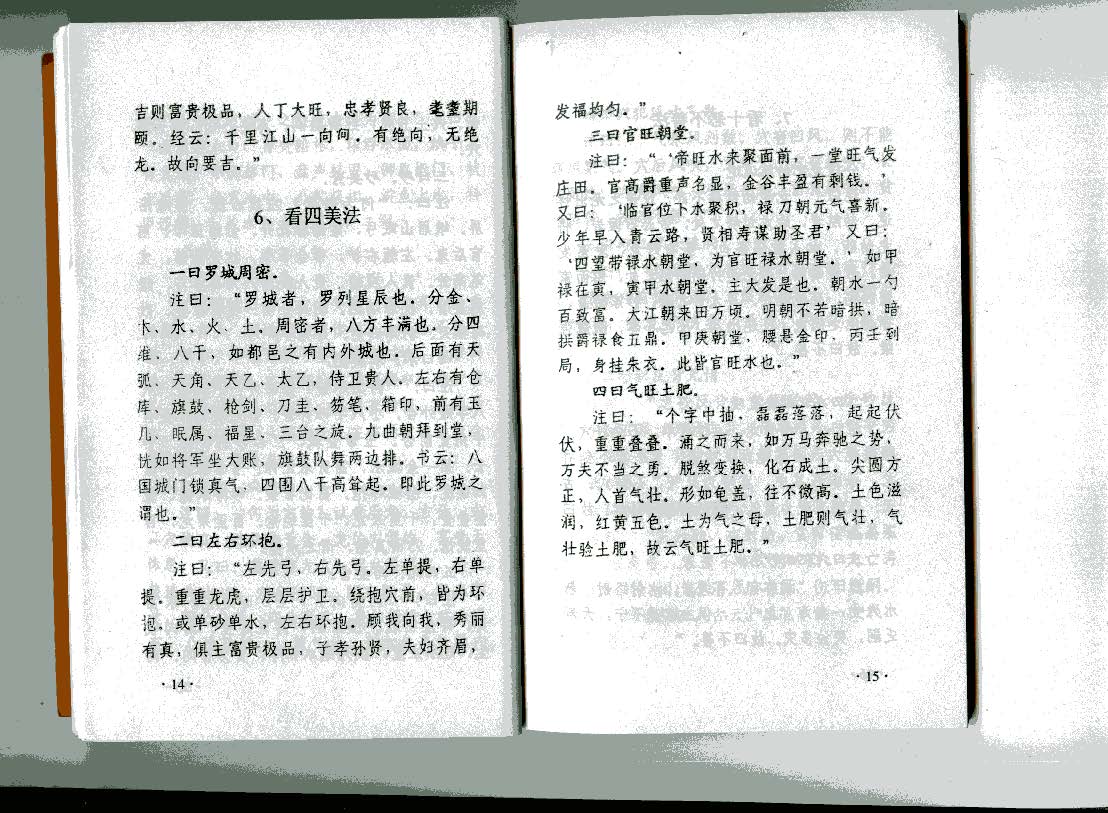 吉则富贵极品，人丁大旺，忠孝贤良，耄耋期
颐。经云：千里江山一向间。有绝向，无绝
龙。故向要吉。”
6、看四美法
一曰罗城周密。
注曰：“罗城者，罗列星辰也。分金、
木、水、火、土。周密者，八方丰满也。分四
维、八干，如都邑之有内外城也。后面有天
弧、天角、天乙、太乙，侍卫贵人。左右有仓
库、旗鼓、枪剑、刀圭、笏笔，箱印，前有玉
几、眠属、福星、三台之旋。九曲朝拜到堂，
恍如将军坐大账，旗鼓队舞两边排。书云：八
国城门锁真气，四围八干高耸起。即此罗城之
谓也。”
二曰左右环抱。
注曰：“左先弓，右先弓。左单提，右单
提。重重龙虎，层层护卫。绕抱穴前，皆为环
抱。或单砂单水，左右环抱。顾我向我，秀丽
有真，俱主富贵极品，子孝孙贤，夫妇齐眉，
·14·
发福均匀。”
三曰官旺朝堂。
注曰：“‘帝旺水来聚面前，一堂旺气发
庄田。官高爵重声名显，金谷丰盈有剩钱。’
又曰：‘临官位下水聚积，禄刀朝元气喜新。
少年早入青云路，贤相寿谋助圣君’又曰：
‘四望带禄水朝堂，为官旺禄水朝堂。’如甲
禄在寅，寅甲水朝堂。主大发是也。朝水一勺
百致富。大江朝来田万顷。明朝不若暗拱，暗
拱爵禄食五鼎。甲庚朝堂，腰悬金印，丙壬到
局，身挂朱衣。此皆官旺水也。”
四曰气旺土肥。
注曰：“个字中抽，磊磊落落，起起伏
伏，重重叠叠。涌之而来，如万马奔驰之势，
万夫不当之勇。脱煞变换，化石成土。尖圆方
正，人首气壮。形如龟盖，往不微高。土色滋
润，红黄五色。土为气之母，土肥则气壮，气
壮验土肥，故云气旺土肥。”
·15·